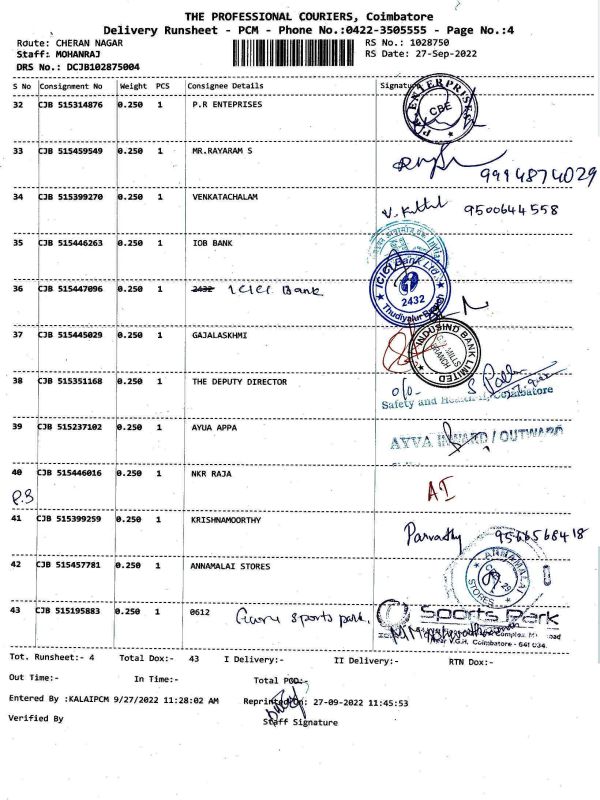 THE PROFESSIONAL COURIERS, Coimbatore
Delivery Runsheet - PCM - Phone No.:0422-3505555 - Page No.:4
Route: CHERAN NAGAR RS No.: 1028750
Staff: MOHANRAJ RS Date: 27-Sep-2022
DRS No.: DCJB102875004
S No Consignment No Weight PCS Consignee Details Signature
32 CJB 515314876 0.250 1 P.R ENTEPRISES
P.R. ENTERPRISES CBE
33 CJB 515459549 0.250 1 MR.RAYARAM S
9994874029
34 CJB 515399270 0.250 1 VENKATACHALAM
9500644558
35 CJB 515446263 0.250 1 IOB BANK
36 CJB 515447096 0.250 1 2432 ICICI Bank
ICICI Bank Ltd. 2432 Thudiyalur Branch
37 CJB 515445029 0.250 1 GAJALASKHMI
INDUSIND BANK LIMITED MILLS BRANCH
38 CJB 515351168 0.250 1 THE DEPUTY DIRECTOR
Safety and Coimbatore
39 CJB 515237102 0.250 1 AYUA APPA
AYVA INWARD / OUTWARD
40 CJB 515446016 0.250 1 NKR RAJA
P.B AI
41 CJB 515399259 0.250 1 KRISHNAMOORTHY
Parvathy 9566568418
42 CJB 515457781 0.250 1 ANNAMALAI STORES
ANNAMALAI STORES
43 CJB 515195883 0.250 1 0612 Guru sports park.
Sports Park
Complex
Near V.G.H. Coimbatore - 641 034.
Tot. Runsheet:- 4 Total Dox:- 43 I Delivery:- II Delivery:- RTN Dox:-
Out Time:- In Time:- Total POD:-
Entered By :KALAIPCM 9/27/2022 11:28:02 AM Reprinted On: 27-09-2022 11:45:53
Verified By Staff Signature